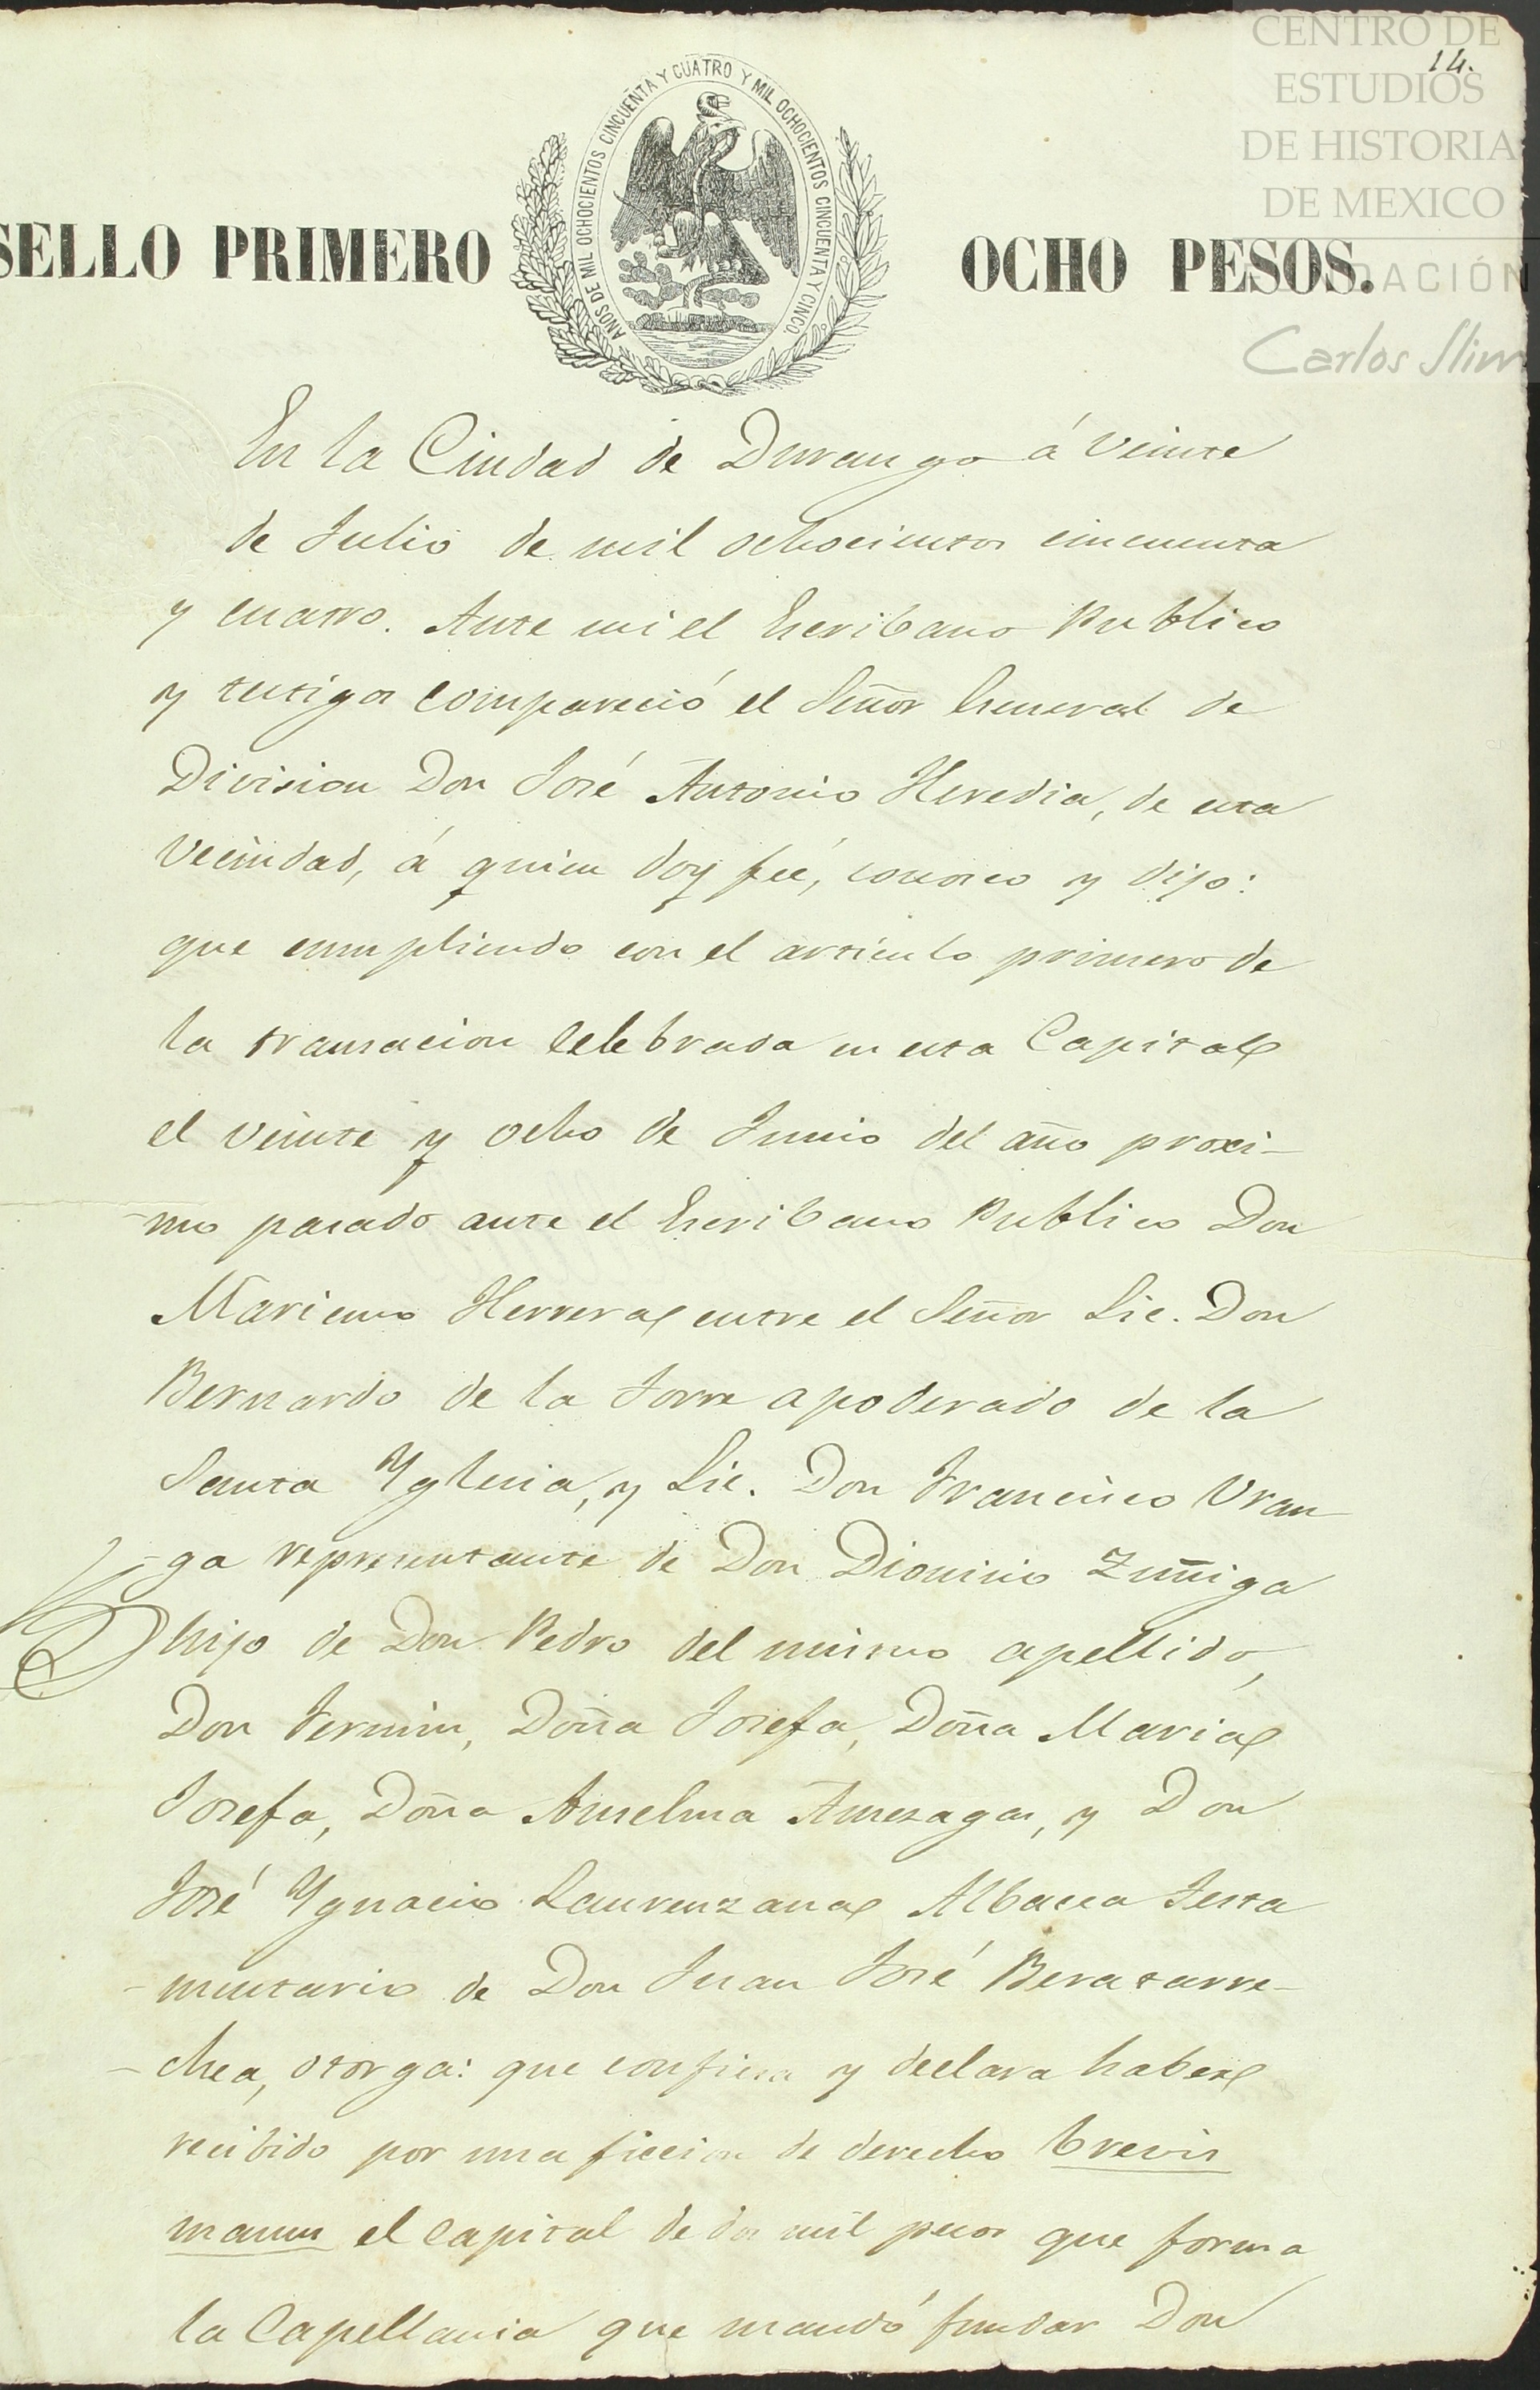 CENTRO DE
ESTUDIOS
DE HISTORIA
DE MEXICO
14.
AÑOS DE MIL OCHOCIENTOS CINCUENTA Y CUATRO Y MIL OCHOCIENTOS CINCUENTA Y CINCO.
SELLO PRIMERO OCHO PESOS.
Carlos Slim
En la Ciudad de Durango á veinte
de Julio de mil ochocientos cincuenta
y cuatro. Ante mi el Escribano Publico
y testigos compareció el Señor General de
Division Don José Antonio Heredia, de esta
vecindad, á quien doy feé, conosco y dijo:
que cumpliendo con el articulo primero de
la transacion celebrada en esta Capital
el veinte y ocho de Junio del año proxi-
-mo pasado ante el Escribano Publico Don
Mariano Herrera entre el Señor Lic. Don
Bernardo de la Torre apoderado de la
Santa Yglesia, y Lic. Don Francisco Vran
-ga representante de Don Dionisio Zuñiga
hijo de Don Pedro del mismo apellido,
Don Fermin, Doña Josefa, Doña Maria
Josefa, Doña Anselma Amezagas, y Don
José Ygnacio Laurenzana Albacea Testa
-mentario de Don Juan José Beratarre-
-chea, otorga: que confiesa y declara haber
recibido por una ficcion de derecho brevis
manus el capital de dos mil pesos que forma
la Capellania que mandó fundar Don